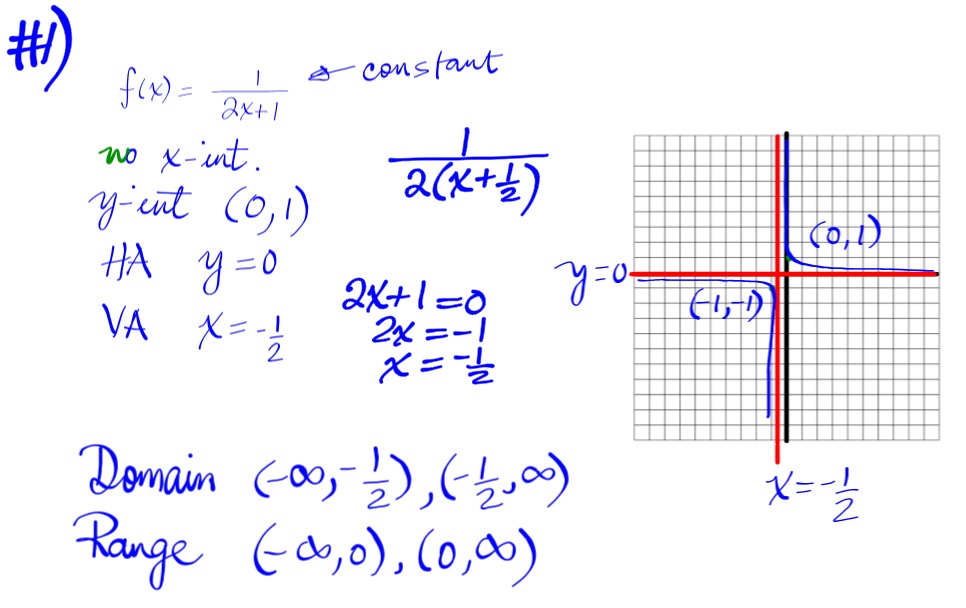 #1)
f(x) = 1/(2x+1) ← constant
no x-int.
y-int (0,1)
HA y=0
VA x=-1/2
1/(2(x+1/2))
2x+1=0
2x=-1
x=-1/2
(0,1)
y=0
(-1,-1)
x=-1/2
Domain (-∞,-1/2),(-1/2,∞)
Range (-∞,0),(0,∞)